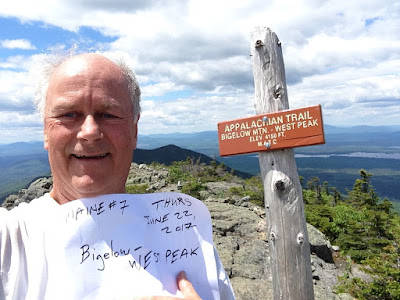 APPALACHIAN TRAIL
BIGELOW MTN. - WEST PEAK
ELEV. 4150 FT.
M.A.T.C
MAINE #7 THURS
JUNE 22,
2017
Bigelow -
WEST PEAK